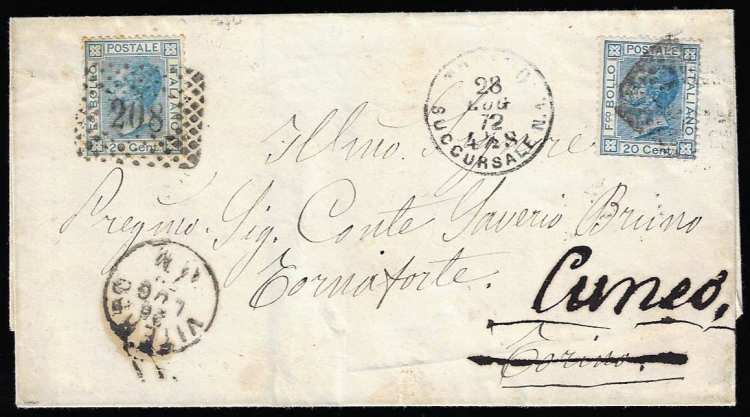 POSTALE
Fco BOLLO
ITALIANO
20 Cent
208
28
LUG
72
4 S
SUCCURSALE N.
POSTALE
Fco BOLLO
ITALIANO
20 Cent
Illmo Signore
Pregmo. Sig. Conte Saverio Bruno
Tornaforte.
Cuneo,
Torino.
VITERBO
26
LUG
M